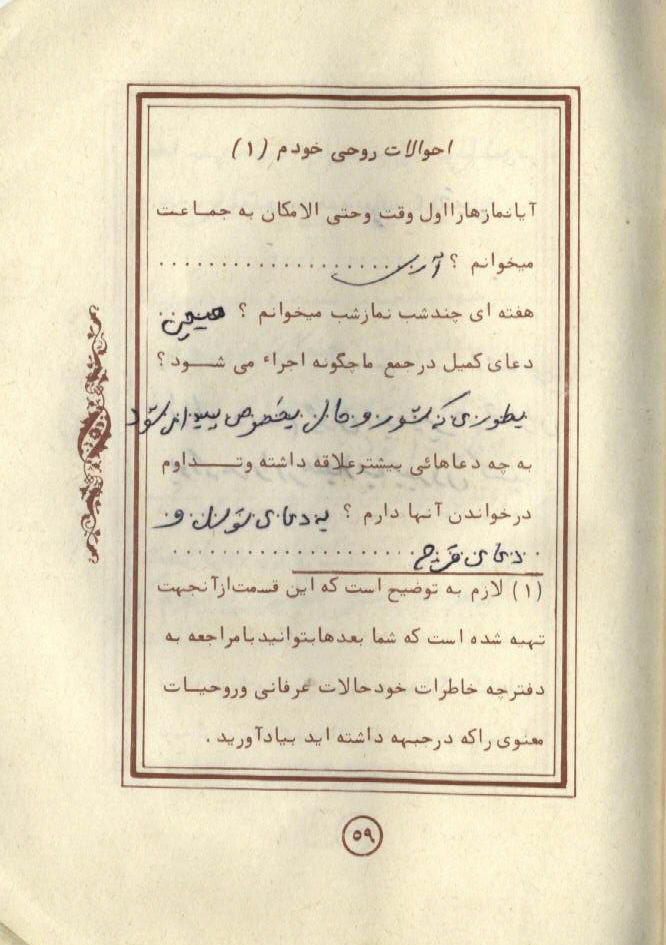 احوالات روحی خودم (۱)
آیا نمازها را اول وقت وحتی الامکان به جماعت
میخوانم ؟ آری
هفته ای چند شب نماز شب میخوانم ؟
دعای کمیل در جمع ما چگونه اجراء می شود ؟
بطوری که شور و حال بخصوص پیدا می شود
به چه دعاهائی بیشتر علاقه داشته وتداوم
درخواندن آنها دارم ؟ به دعای توسل و
دعای فرج
(۱) لازم به توضیح است که این قسمت از آنجهت
تهیه شده است که شما بعدها بتوانید با مراجعه به
دفترچه خاطرات خود حالات عرفانی وروحیات
معنوی را که در جبهه داشته اید بیاد آورید .
۵۹